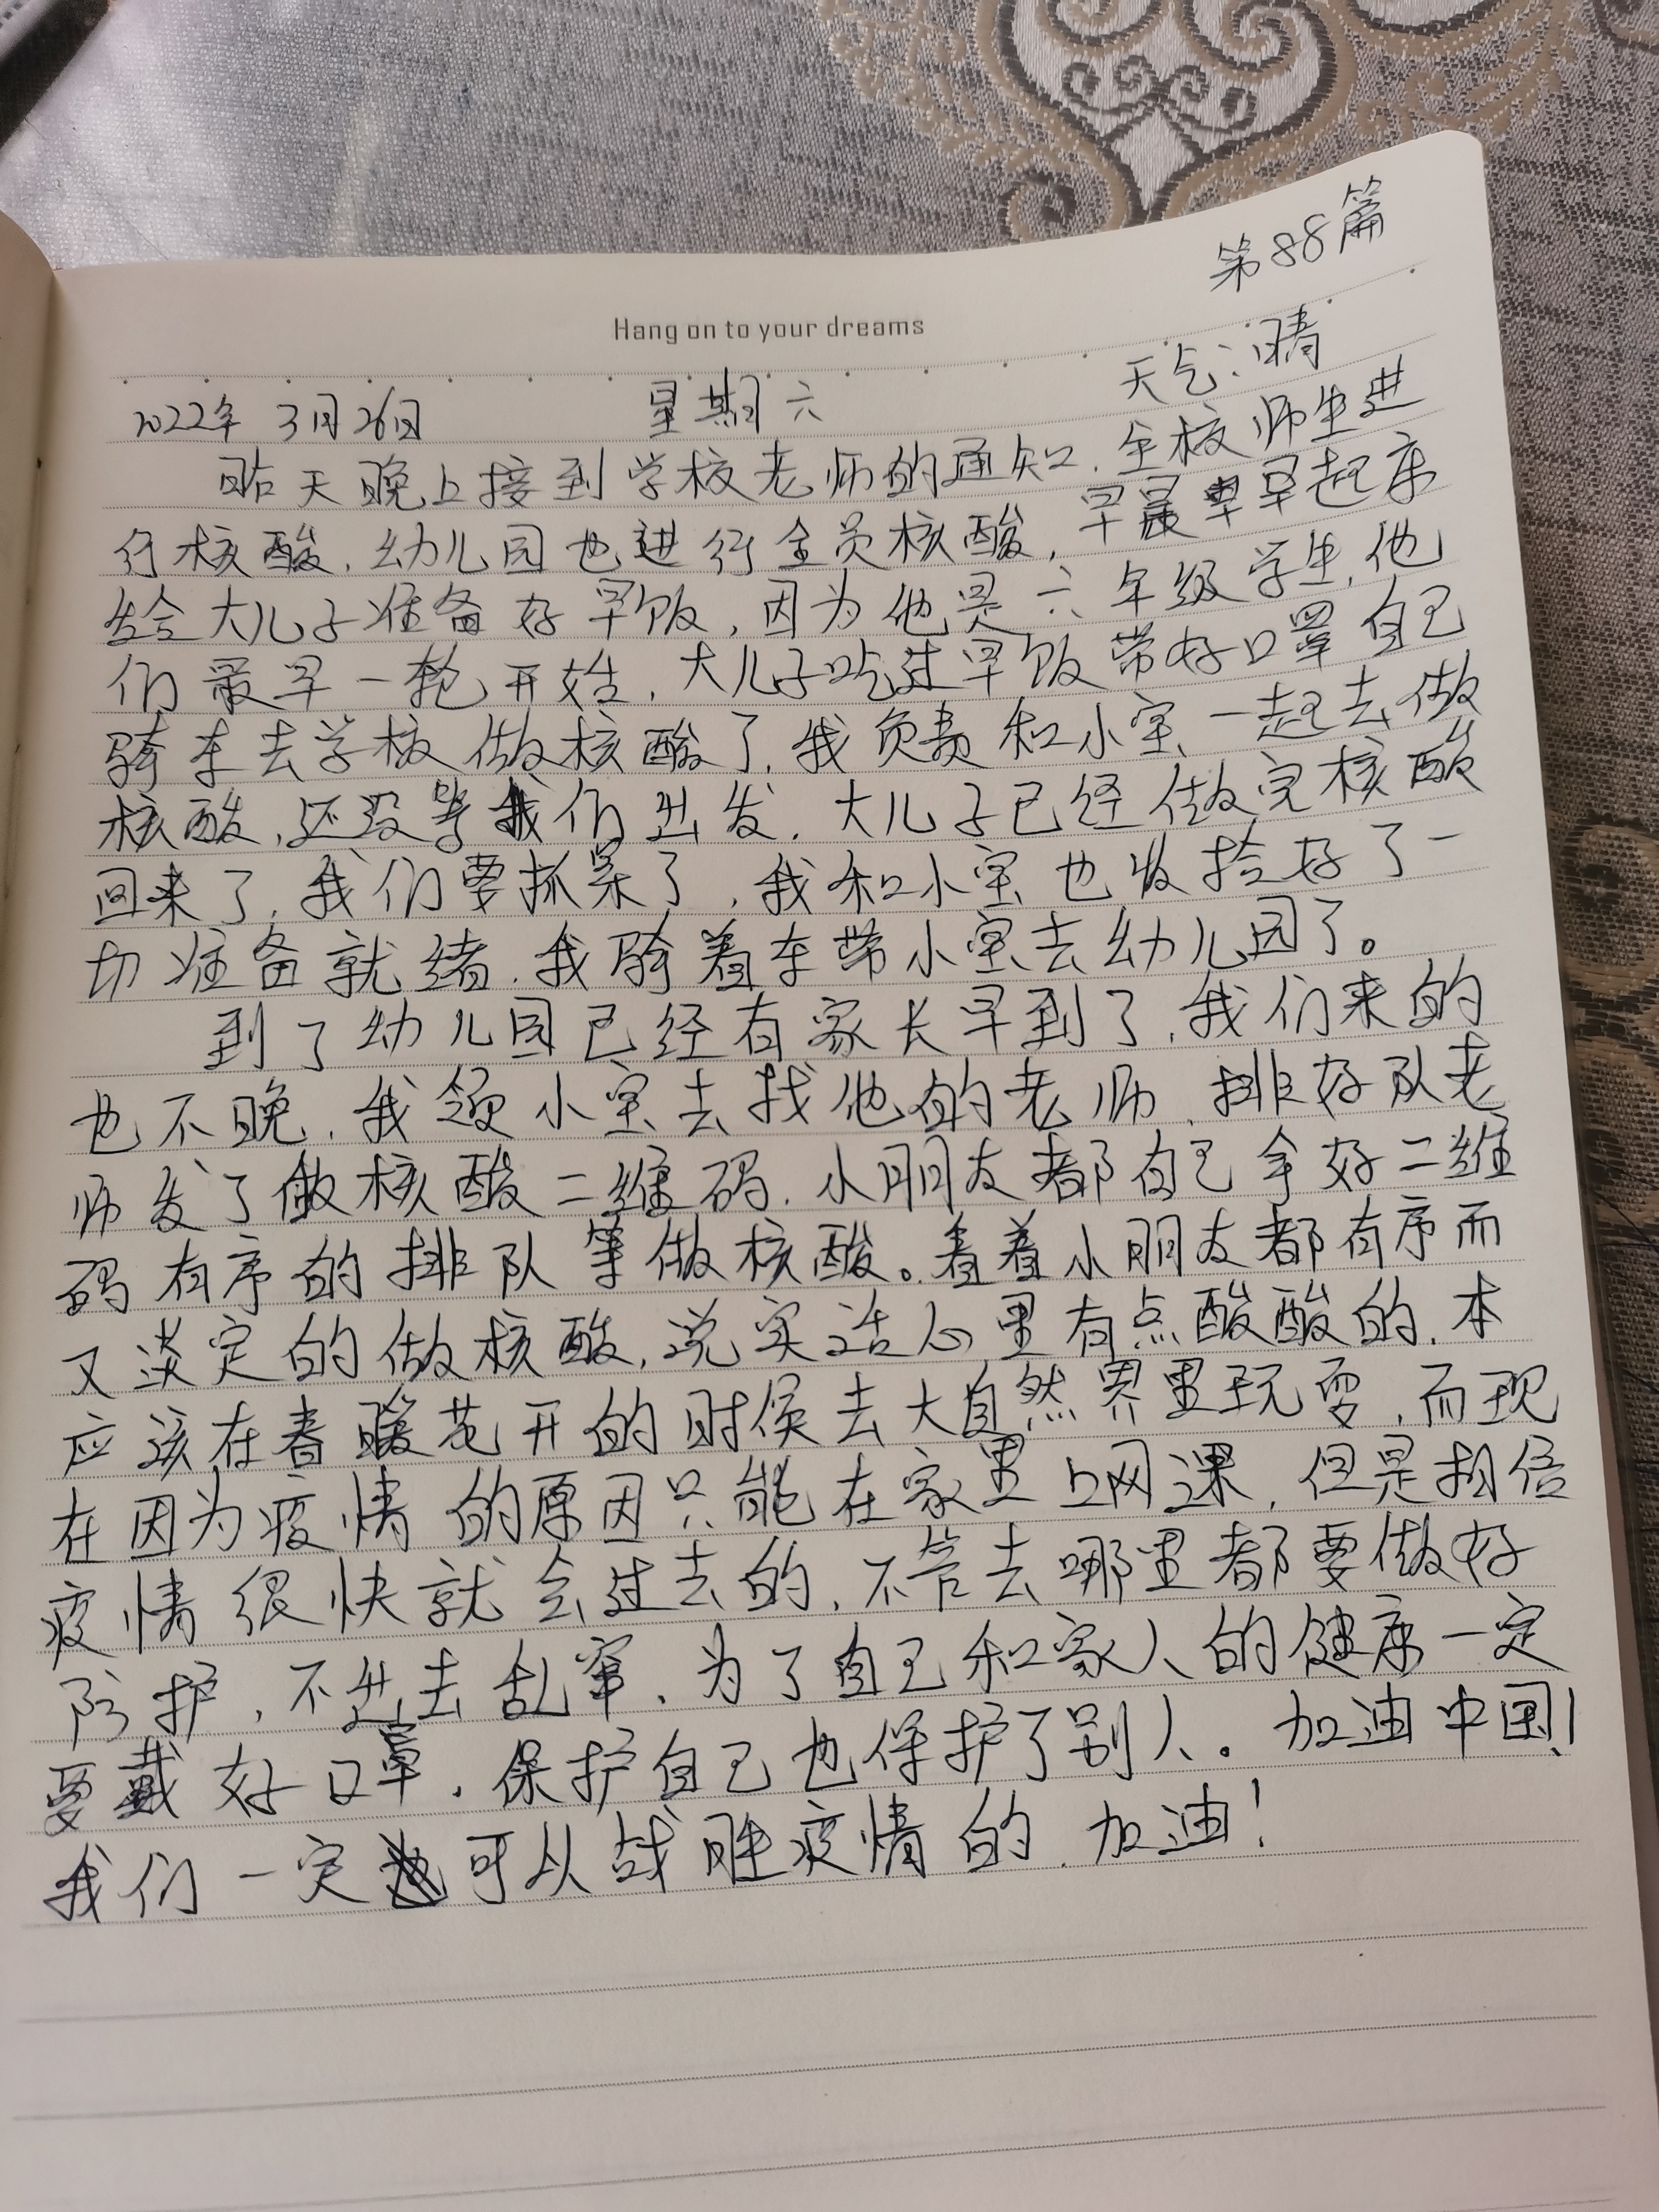 第88篇
Hang on to your dreams
2022年 3月26日 星期六 天气:晴
昨天晚上接到学校老师的通知,全校师生进
行核酸,幼儿园也进行全员核酸,早晨早早起床
给大儿子准备好早饭,因为他是六年级学生,他
们最早一轮开始,大儿子吃过早饭带好口罩自己
骑车去学校做核酸了,我负责和小宝一起去做
核酸,还没等我们出发,大儿子已经做完核酸
回来了,我们要抓紧了,我和小宝也收拾好了一
切准备就绪,我骑着车带小宝去幼儿园了。
到了幼儿园已经有家长早到了,我们来的
也不晚,我领小宝去找他的老师,排好队老
师发了做核酸二维码,小朋友都自己拿好二维
码有序的排队等做核酸。看着小朋友都有序而
又淡定的做核酸,说实话心里有点酸酸的,本
应该在春暖花开的时侯去大自然界里玩耍,而现
在因为疫情的原因只能在家里上网课,但是相信
疫情很快就会过去的,不管去哪里都要做好
防护,不出去乱窜,为了自己和家人的健康一定
要戴好口罩,保护自己也保护了别人。加油中国!
我们一定可以战胜疫情的,加油!